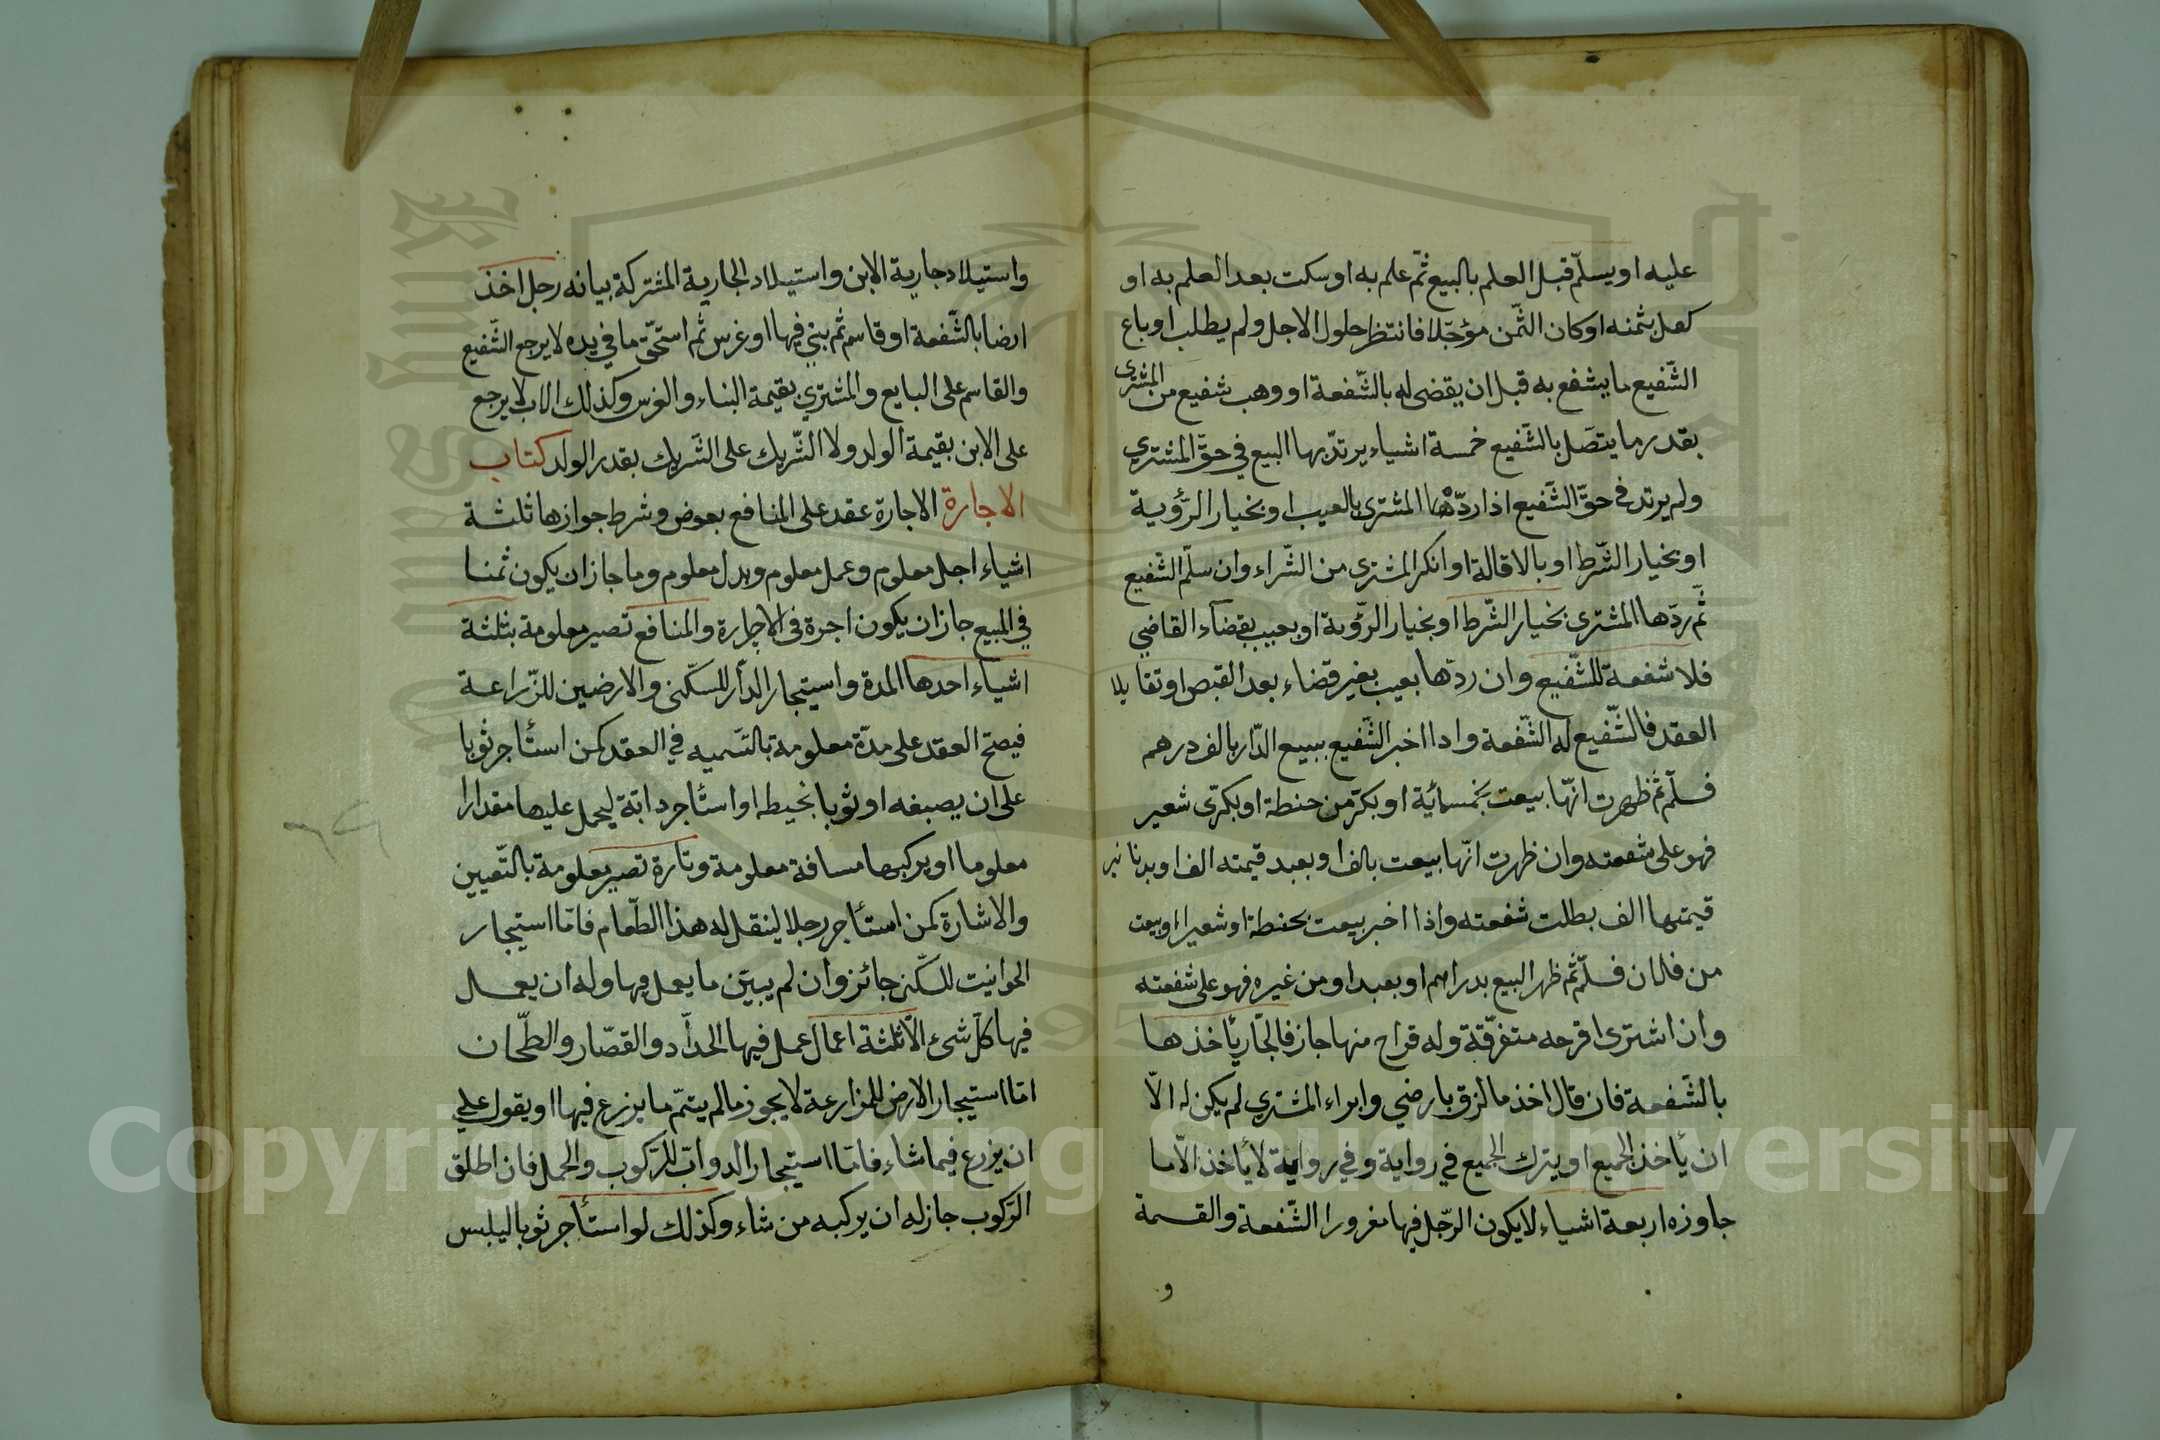 عليه او يسلّم قبل العلم بالبيع ثمّ علم به او سكت بعد العلم به او
كفل بثمنه او كان الثّمن مؤجّلا فانتظر حلول الاجل ولم يطلب او باع
الشّفيع ما يشفع به قبل ان يقضى له بالشّفعة او وهب شفيع من المشترى
بقدر ما يتصَل بالشّفيع خمسة اشياء يرتدّ بها البيع في حقّ المشتري
ولم يرتد فى حقّ الشّفيع اذا ردّها المشترى بالعيب او بخيار الرّؤية
او بخيار الشّرط او بالاقالة او انكر المشترى من الشّراء وان سلّم الشّفيع
ثمّ ردّها المشترى بخيار الشّرط او بخيار الرّؤية او بعيب بقضاء القاضي
فلا شفعة للشّفيع وان ردّها بعيب بغير قضاء بعد القبض او تقايلا
العقد فالشّفيع له الشّفعة واذا اخبر الشّفيع ببيع الدّار بالف درهم
فسلّم ثمّ ظهرت انّها بيعت بخمسائية او بكرّ من حنطة او بكرّى شعير
فهو على شفعته وان ظهرت انّها بيعت بالف او بعبد قيمته الف او بدنانير
قيمتها الف بطلت شفعته واذا اخبر بيعت بحنطة او شعير او بيعت
من فلان فسلّم ثمّ ظهر البيع بدراهم او بعبد او من غيره فهو على شفعته
وان اشترى اقرحه متفرّقة وله قراح منها جاز فالجّار يأخذها
بالشّفعة فان قال اخذ ما لزق بارضي وابراء المشتري لم يكن له الّا
ان يأخذ الجميع او يترك الجميع في رواية وفي رواية لا يأخذ الّا ما
جاوزه اربعة اشياء لا يكون الرّجل فيها مغرورا الشّفعة والقسمة
و
واستيلاد جارية الابن واستيلاد الجارية المشتركة بيانه رجل اخذ
ارضا بالشّفعة او قاسم ثم بنى فيها او غرس ثم استحقّ ما في يده لا يرجع الشّفيع
والقاسم على البايع والمشتري بقيمة البناء والغرس وكذلك الاب لا يرجع
على الابن بقيمة الولد ولا الشّريك على الشّريك بقدر الولد كتاب
الاجارة الاجارة عقد على المنافع بعوض وشرط جوازها ثلثة
اشياء اجل معلوم وعمل معلوم وبدل معلوم وما جاز ان يكون ثمنا
في المبيع جاز ان يكون اجرة فى الاجارة والمنافع تصير معلومة بثلثة
اشياء احدها المدة واستيجار الدّار للسّكنى والارضين للزّراعة
فيصحّ العقد على مدّة معلومة بالتّسميه في العقد كمن استأجر ثوبا
على ان يصبغه او ثوبا يخيطه او استأجر دابّة ليحمل عليها مقدارا
معلوما او يركبها مسافة معلومة وتارة تصير معلومة بالتّعيين
والاشارة كمن استأجر رجلا لينقل له هذا الطّعام فامّا استيجار
الحوانيت للسّكنى جائز وان لم يبيّن ما يعمل فيها وله ان يعمل
فيها كلّ شيء الّا ثلثة اعمال عمل فيها الحدّاد والقصّار والطّحان
امّا استيجار الارض للمزارعة لا يجوز مالم يتمّ ما يزرع فيها او يقول على
ان يزرع فيما شاء فامّا استيجار الدوابّ للرّكوب والحمل فان اطلق
الرّكوب جاز له ان يركبه من شاء وكذلك لو استأجر ثوبا ليلبس
Copyright © King Saud University